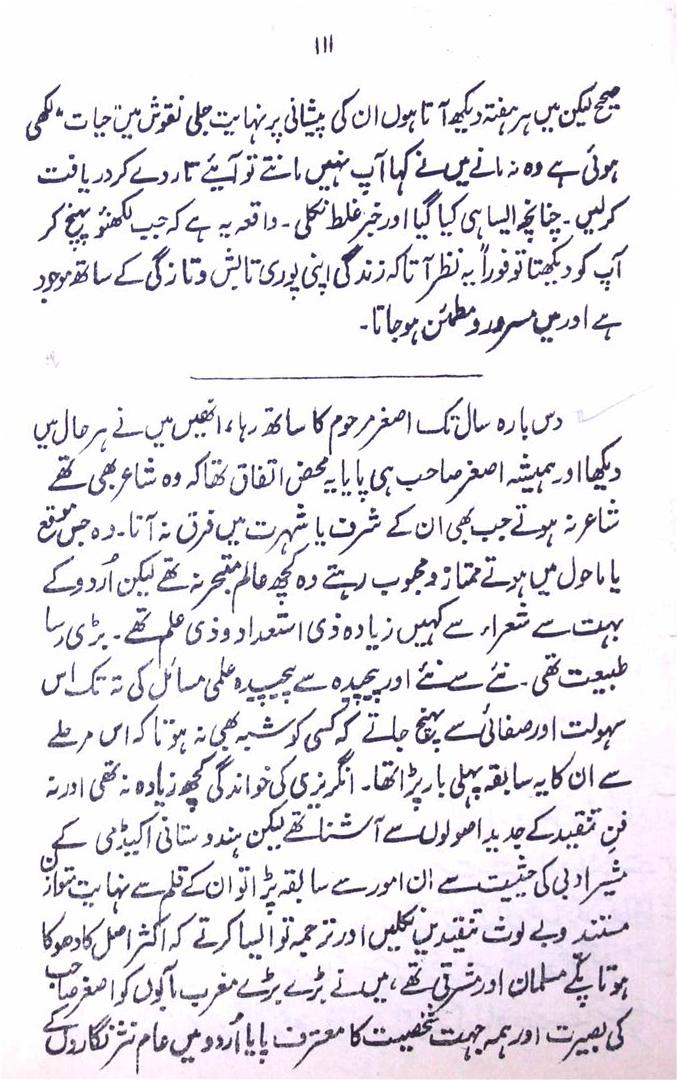 ۱۱۱
صحیح لیکن میں ہر ہفتہ دیکھ آتا ہوں ان کی پیشانی پر نہایت جلی نقوش میں "حیات" لکھی
ہوئی ہے وہ نہ مانے میں نے کہا آپ نہیں مانتے تو آیئے تار دے کر دریافت
کرلیں۔ چنانچہ ایسا ہی کیا گیا اور خبر غلط نکلی۔ واقعہ یہ ہے کہ جب لکھنؤ پہنچ کر
آپ کو دیکھتا تو فوراً یہ نظر آتا کہ زندگی اپنی پوری تابش و تازگی کے ساتھ موجود
ہے اور میں مسرور و مطمئن ہو جاتا۔
دس بارہ سال تک اصغر مرحوم کا ساتھ رہا، انھیں میں نے ہر حال میں
دیکھا اور ہمیشہ اصغر صاحب ہی پایا یہ محض اتفاق تھا کہ وہ شاعر بھی تھے
شاعر نہ ہوتے جب بھی ان کے شرف یا شہرت میں فرق نہ آتا۔ وہ جس موقع
یا ماحول میں ہوتے ممتاز و محبوب رہتے وہ کچھ عالم متبحر نہ تھے لیکن اُردو کے
بہت سے شعراء سے کہیں زیادہ ذی استعداد و ذی علم تھے۔ بڑی رسا
طبیعت تھی۔ نئے سے نئے اور پیچیدہ سے پیچیدہ علمی مسائل کی تہ تک اس
سہولت اور صفائی سے پہنچ جاتے کہ کسی کو شبہ بھی نہ ہوتا کہ اس مرحلے
سے ان کا یہ سابقہ پہلی بار پڑا تھا۔ انگریزی کی خواندگی کچھ زیادہ نہ تھی اور نہ
فنِ تنقید کے جدید اصولوں سے آشنا تھے لیکن ہندوستانی اکیڈمی کے
مشیر ادبی کی حیثیت سے ان امور سے سابقہ پڑا تو ان کے قلم سے نہایت متوازن
مستند و بے لوث تنقیدیں نکلیں اور ترجمہ تو ایسا کرتے کہ اکثر اصل کا دھوکا
ہوتا پکے مسلمان اور مشرقی تھے، میں نے بڑے بڑے مغرب مآبوں کو اصغر صاحب
کی بصیرت اور ہمہ جہت شخصیت کا معترف پایا اُردو میں عام نثر نگاروں کے